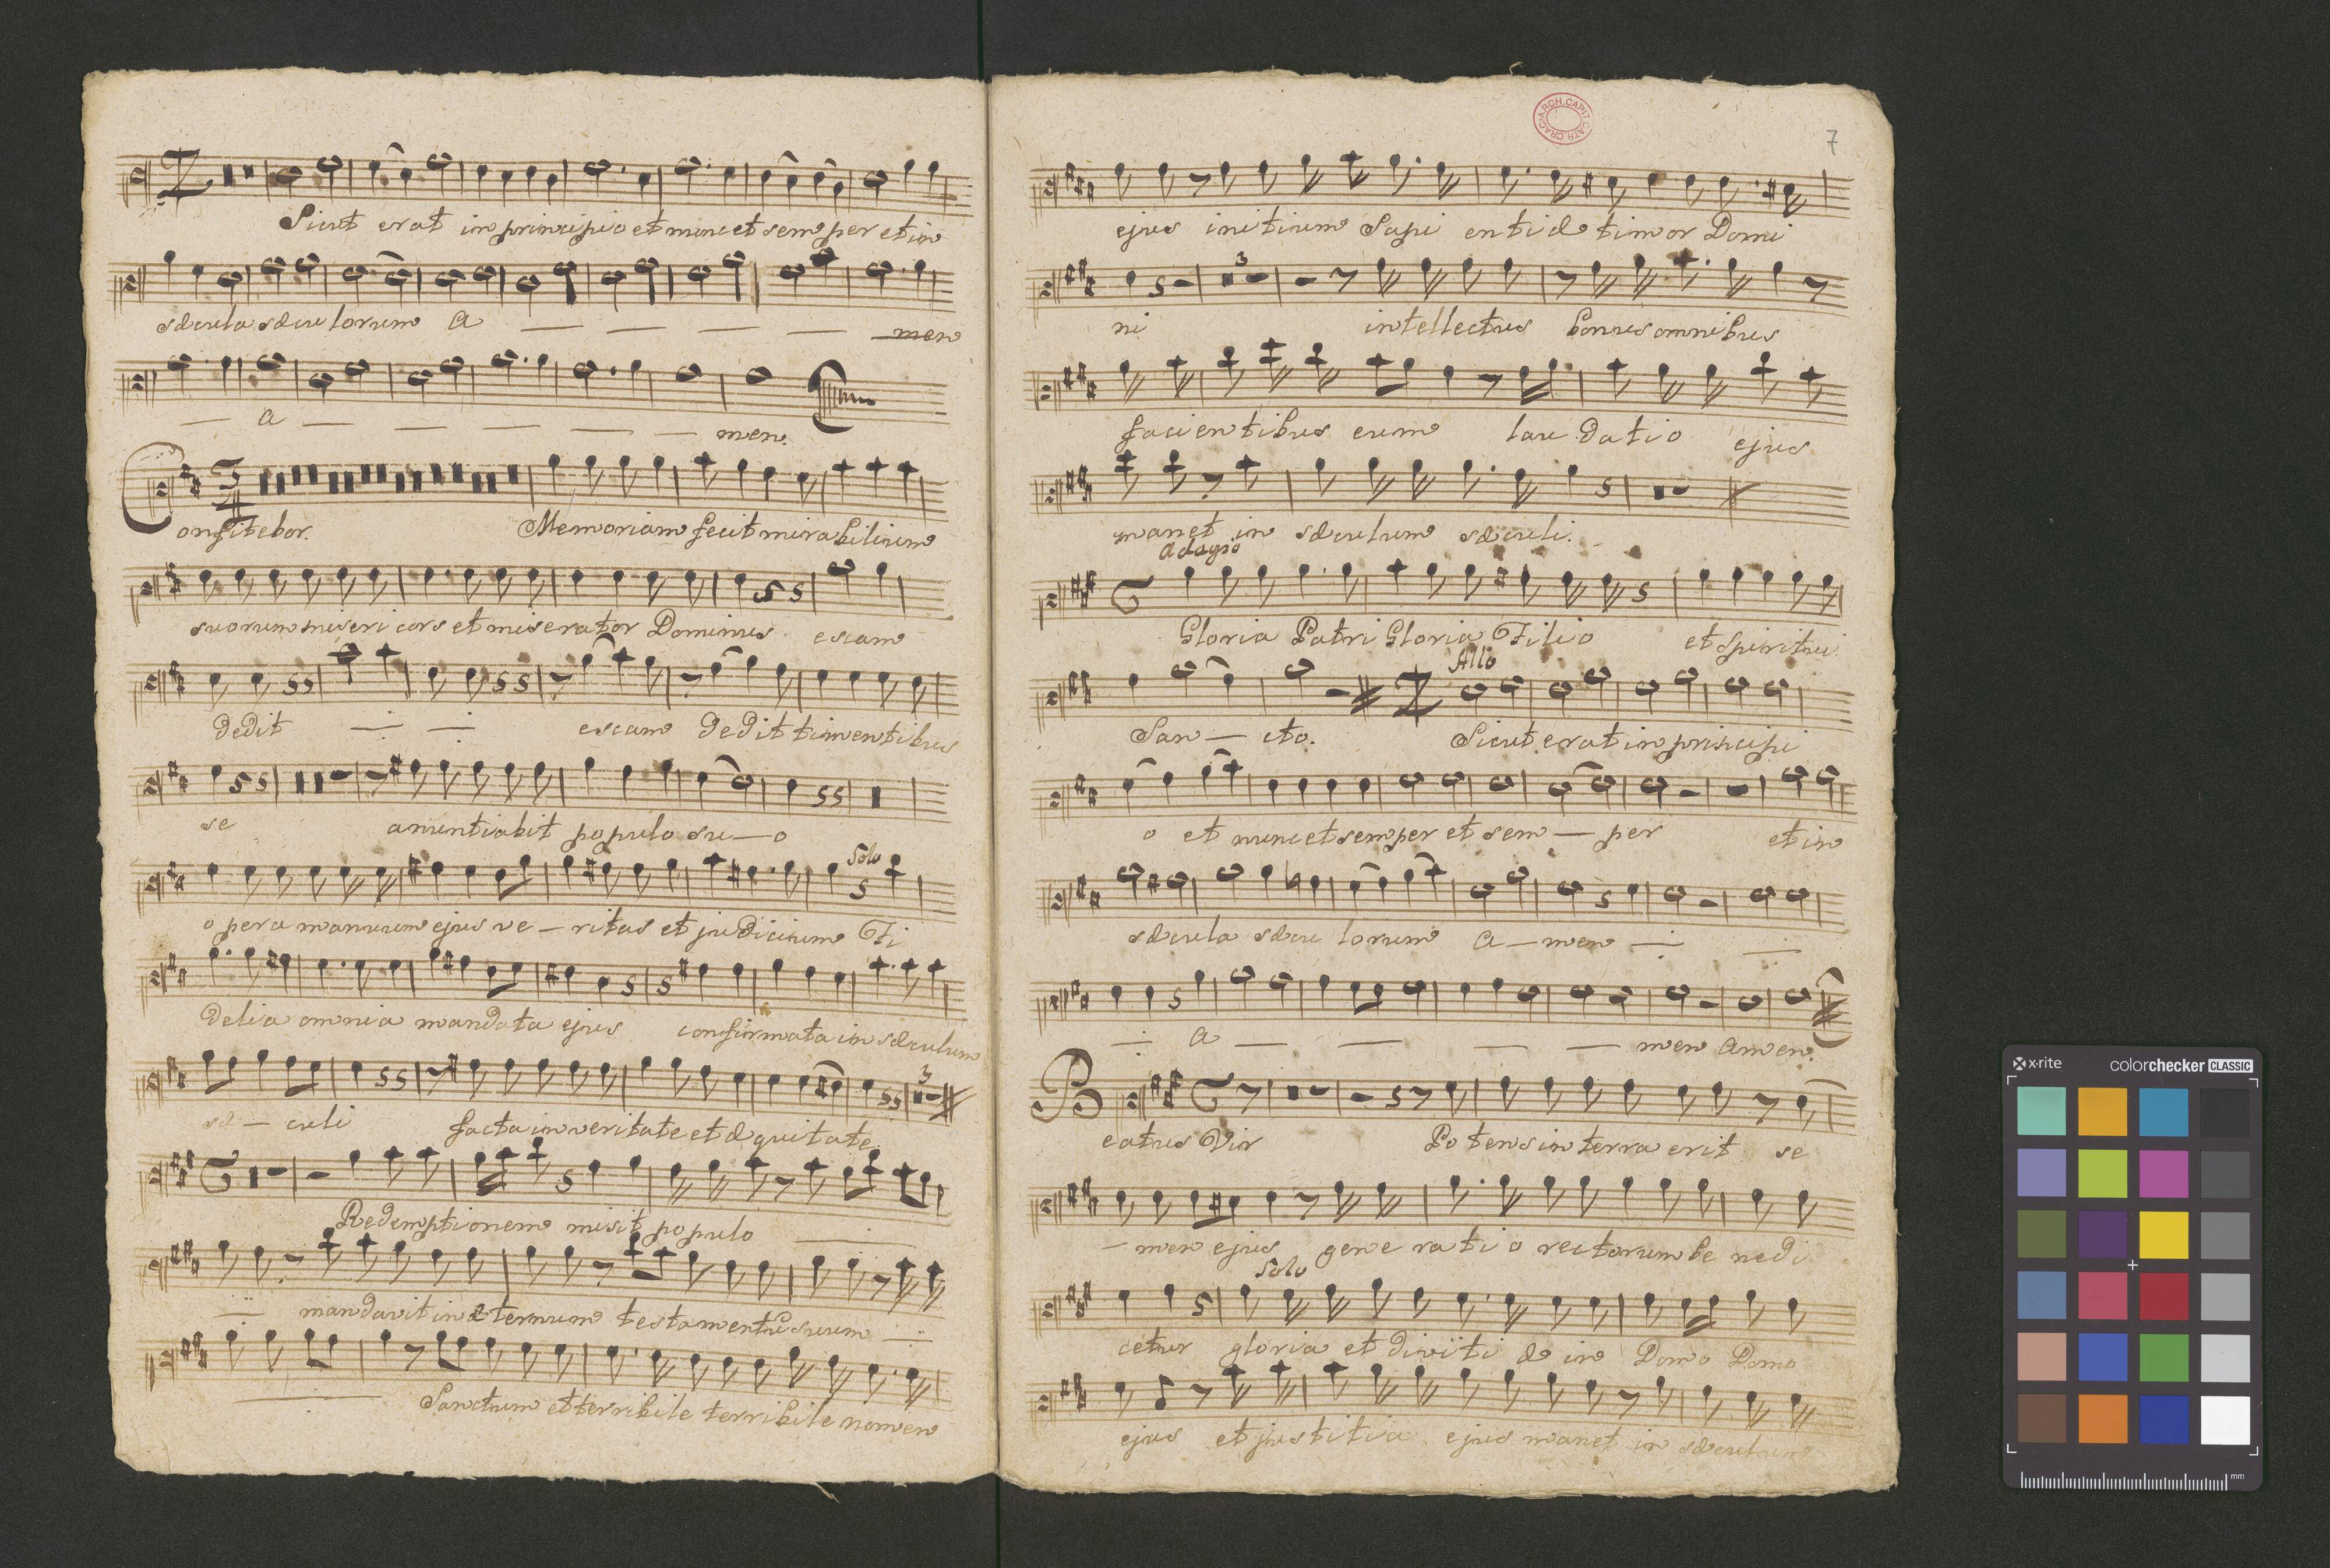 Sicut erat in principio et nunc et semper et in
sæcula sæculorum A men
A men.
Confitebor. Memoriam fecit mirabilium
suorum misericors et miserator Dominus escam
dedit escam dedit timentibus
se anuntiabit populo su—o
Solo
opera manuum ejus ve—ritas et judicium Fi
delia omnia mandata ejus confirmata in sæculum
3
sæ—culi facta in veritate et æquitate
Redemptionem misit populo
mandavit in æternum testamentũ suum
Sanctum et terribile terribile nomen
ARCH. CAPIT. CATH. CRAC.
7
ejus initium Sapi entiæ timor Domi
3
ni intellectus bonus omnibus
facientibus eum lau datio ejus
manet in sæculum sæculi.
Adagio
Gloria Patri Gloria Filio et Spiritui
Allo
San—cto. Sicut erat in principi
o et nunc et semper et sem—per et in
sæcula sæcu lorum A—men
A men Amen.
Beatus Vir Potens in terra erit se
—men ejus gene rati o rectorum be nedi
Solo
cetur gloria et diviti æ in Domo Domo
ejus et justitia ejus manet in sæculum
x-rite colorchecker CLASSIC
mm